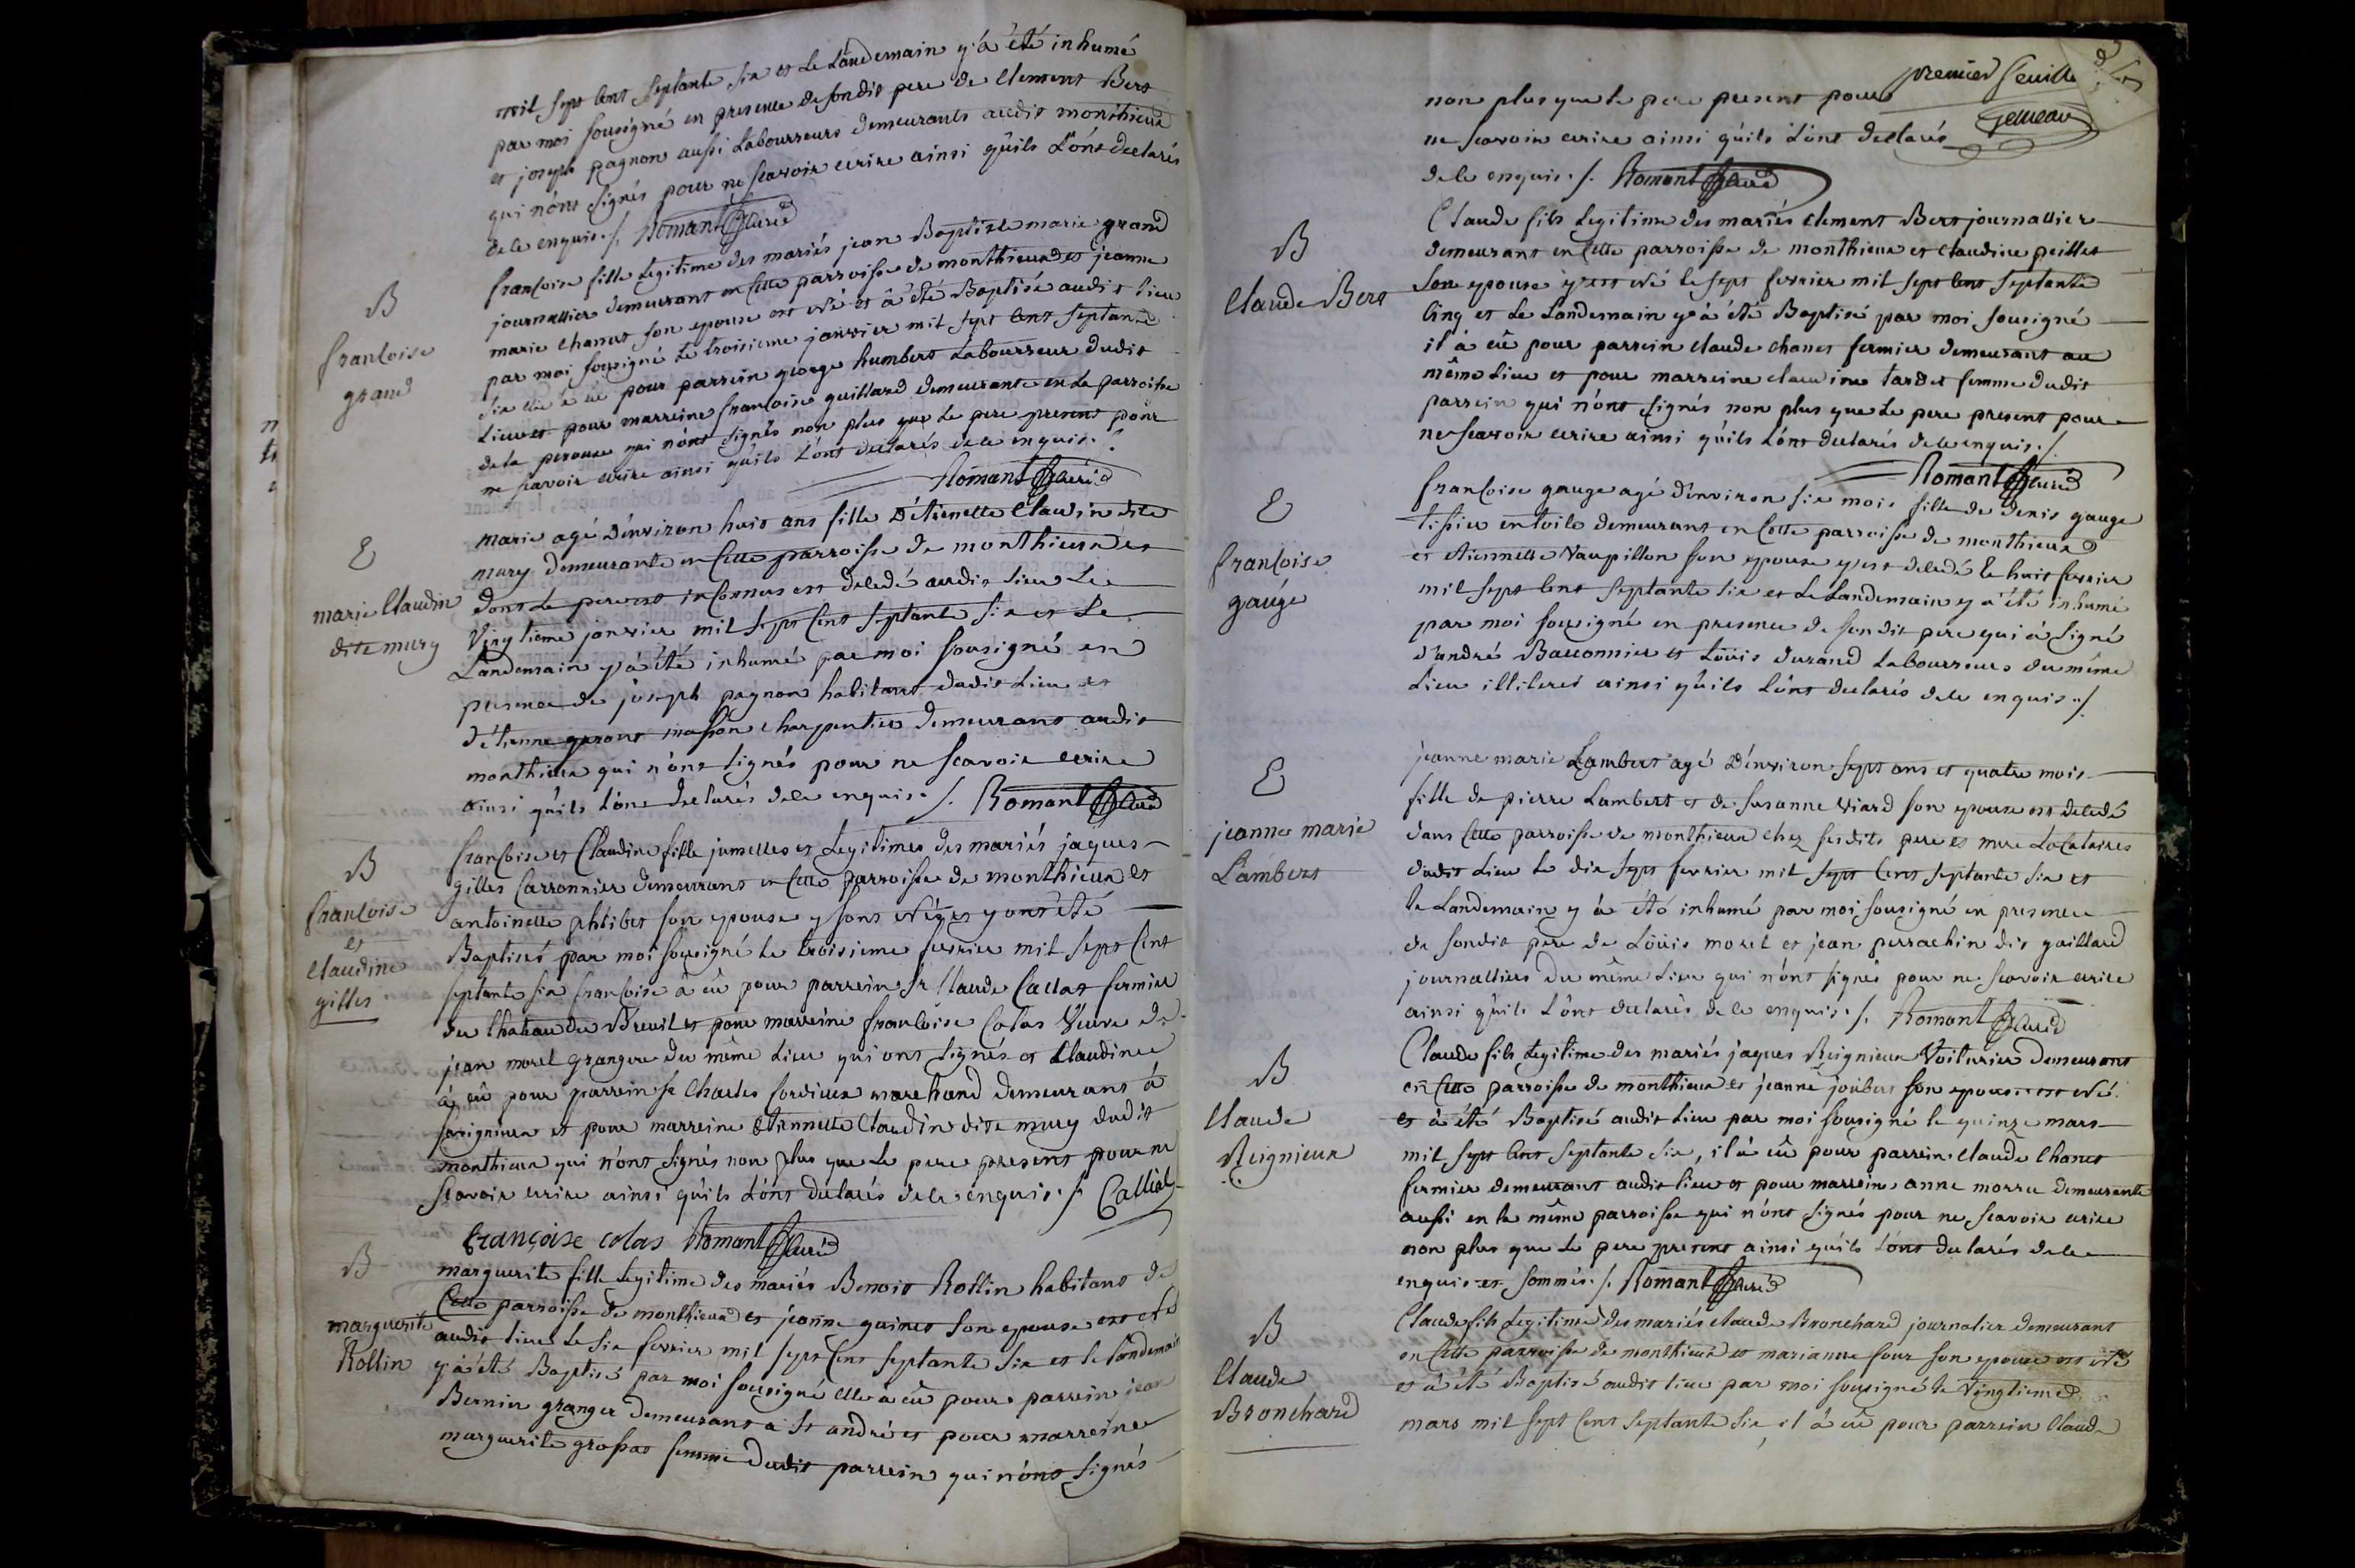 mil sept cent septante six et le Landemain y a été inhumé
par moi sousigné en presence desondit pere de Clement Bert
et joseph pagnon aussi Labourreurs demeurants audit monthieux
qui n'ônt signés pour ne scavoir ecrire ainsi qu'ils L'ônt declarés
de ce enquis ./. Romant Curé
B
francoise
grand
francoise fille Legitime des mariés jean Baptiste marie grand
journallier demeurant en Cette parroisse de monthieux et jeanne
marie Chanet son epouse est née et â été Baptisé audit lieu
par moi sousigné le troisieme janvier mil sept cent septante
six elle a eû pour parrein george humbert Labourreur dudit
Lieu et pour marreine francoise guillard demeurante en La parroisse
de la perouse qui n'ônt signés non plus que Le pere present pour
ne scavoir ecrire ainsi qu'ils L'ônt declarés de ce enquis ./.
Romant Curé
E
marie Claudin
dite mury
marie agé d'environ huit ans fille d'étiennette Claudin dite
mury demeurante en Cette parroisse de monthieux et
dont Le pere est inconnus est decedé audit Lieu Le
Vingtieme janvier mil sept Cent septante six et Le
Landemain y â été inhumé par moi sousigné en
presence de joseph pagnon habitant dudit Lieu et
d'étienne gerant masson Charpentier demeurant audit
monthieux qui n'ônt signés pour ne scavoir ecrire
ainsi qu'ils L'ônt declarés de ce enquis ./. Romant Curé
B
francoise
et
Claudine
gilles
francoise et Claudine fille jumelles et Legitimes des mariés jaques
gilles Carronnier demeurant en Cette parroisse de monthieux et
antoinette philibet son epouse y sont née et y ont été
Baptisés par moi sousigné le troisieme fevrier mil sept Cent
septante six francoise â eû pour parrein sr Claude Callat fermier
du Chateau du Breuil et pour marreine francoise Colas Veuve de
jean morel grangere du même Lieu qui ont signés et Claudine
â eû pour parrein sr Charles sordieux marchand demeurant â
savigneux et pour marreine Etiennette Claudin dite mury dudit
monthieux qui n'ônt signés non plus que Le pere present pour ne
scavoir ecrire ainsi qu'ils L'ônt declarés de ce enquis ./. Calliat
françoise colas Romant Curé
B
marguerite
Rollin
marguerite fille Legitime des mariés Benoit Rollin habitant de
Cette parroisse de monthieux et jeanne guinet son epouse est née
audit lieu Le six fevrier mil sept Cent septante six et le Landemain
y â été Baptisé par moi sousigné elle â eû pour parrein jean
Bernin granger demeurant a st andré et pour marreine
marguerite grossat femme dudit parrein qui n'ônt signés
premier feuillet
non plus que le pere present pour
ne scavoir ecrire ainsi qu'ils L'ônt declarés
de ce enquis ./. Romant Curé
B
Claude Bert
Claude fils Legitime des mariés Clement Bert journallier
demeurant en Cette parroisse de monthieux et Claudine peillet
son epouse y est né le sept fevrier mil sept cent septante
Cinq et Le Landemain y â été Baptisé par moi sousigné
il â eû pour parrein Claude Chanet fermier demeurant au
même Lieu et pour marreine Claudine tardet femme dudit
parrein qui n'ônt signés non plus que Le pere present pour
ne scavoir ecrire ainsi qu'ils L'ônt declarés de ce enquis ./.
Romant Curé
E
francoise
gauge
francoise gauge agé d'environ six mois fille de denis gauge
tissier en toile demeurant en Cette parroisse de monthieux
et etiennette Vaupillon son epouse y est decedé le huit fevrier
mil sept cent septante six et Le Landemain y a été inhumé
par moi sousigné en presence de sondit pere qui â signé
d'andré Baconnier et Loüis durand Labourreurs du même
Lieu illiteres ainsi qu'ils L'ônt declarés de ce enquis ./.
E
jeanne marie
Lambert
jeanne marie Lambert agé d'environ sept ans et quatre mois
fille de pierre Lambert et de susanne Viard son epouse est decedé
dans Cette parroisse de monthieux chez sesdits pere et mere Locataires
dudit Lieu le dix sept fevrier mil sept cent septante six et
le Landemain y â été inhumé par moi sousigné en presence
de sondit pere de Loüis morel et jean perrachin dit gaillard
journalliers du même Lieu qui n'ônt signé pour ne scavoir ecrire
ainsi qu'ils L'ônt declarés de ce enquis ./. Romant Curé
B
Claude
Reignieux
Claude fils Legitime des mariés jaques Reignieux Voiturier demeurant
en Cette parroisse de monthieux et jeanne joubert son epouse est né
et â été Baptisé audit Lieu par moi sousigné le quinze mars
mil sept cent septante six, il â eû pour parrein Claude Chanet
fermier demeurant audit lieu et pour marrein anne morree demeurante
aussi en la même parroisse qui n'ônt signés pour ne scavoir ecrire
non plus que Le pere present ainsi qu'ils L'ônt declarés de ce
enquis et sommés ./. Romant Curé
B
Claude
Bronchard
Claude fils Legitime des mariés Claude Bronchard journalier demeurant
en Cette parroisse de monthieux et marianne four son epouse est né
et â été Baptisé audit lieu par moi sousigné le Vingtieme
mars mil sept Cent septante six, il â eû pour parrein Claude